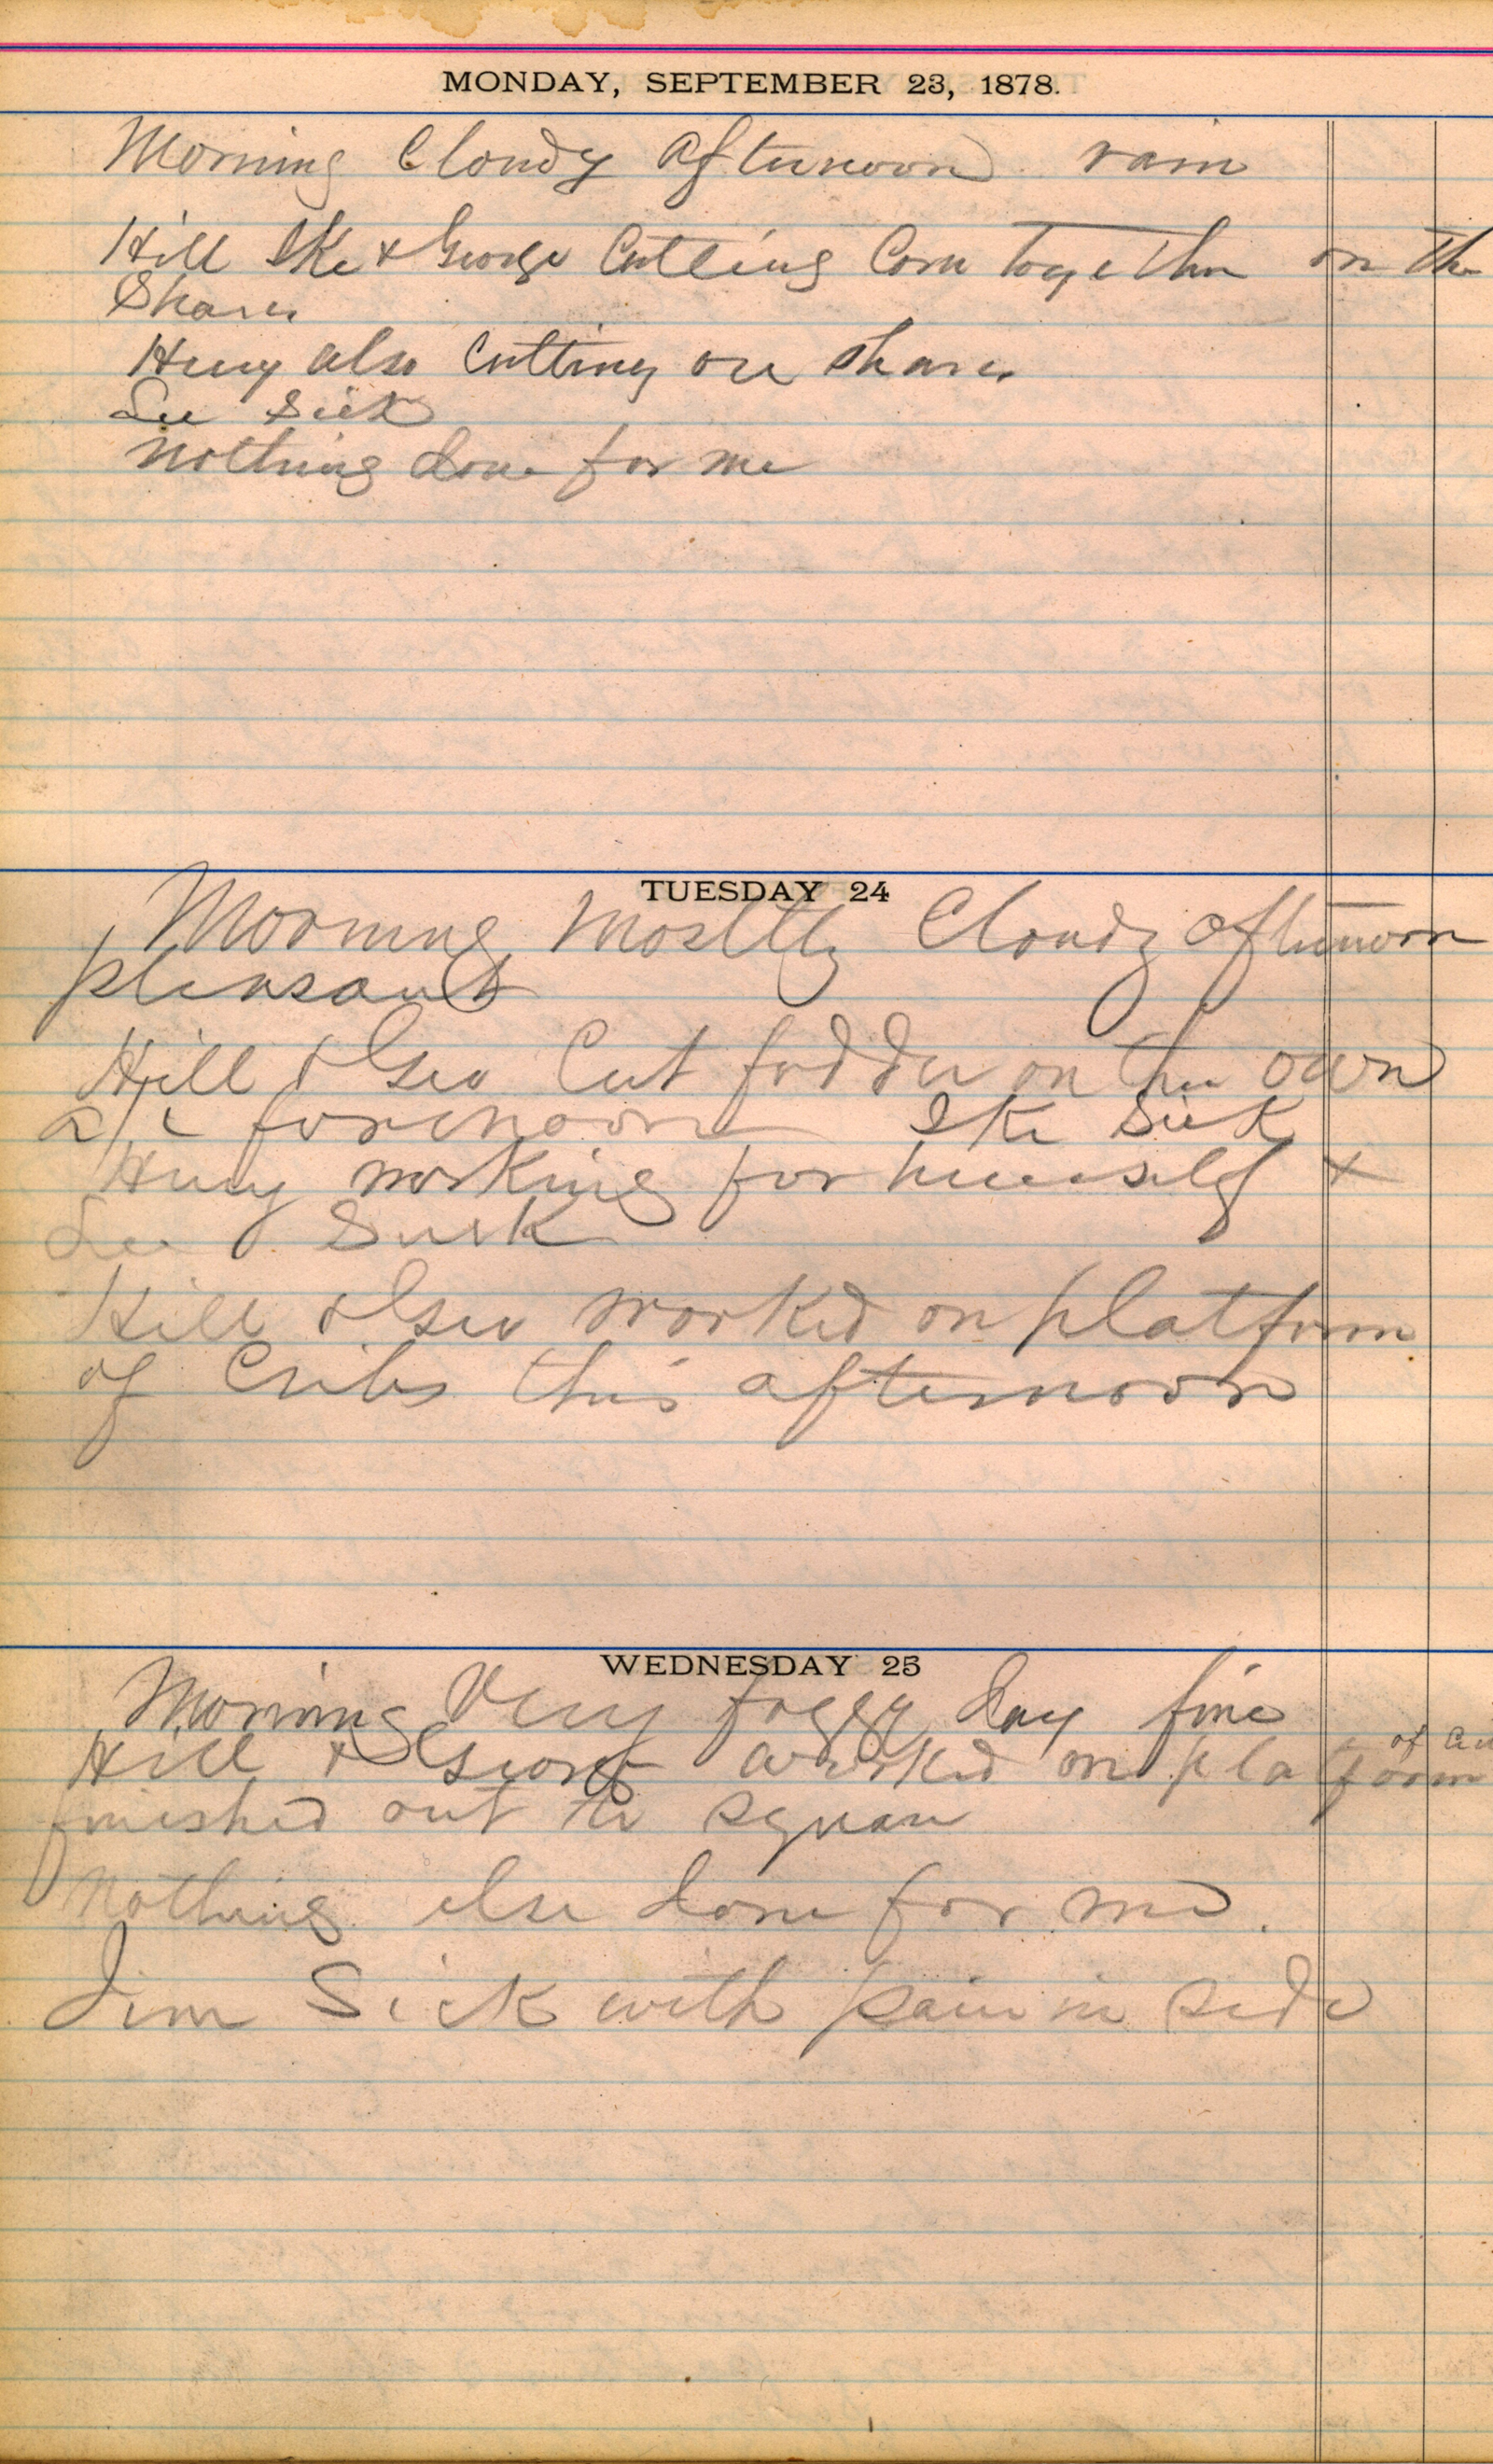 MONDAY, SEPTEMBER 23, 1878.
Morning Cloudy afternoon rain
Hill Ike & George Cutting Corn together on the
Shares
Henry also Cutting on shares
Lee Sick
Nothing done for me
TUESDAY 24
Morning Mostly Cloudy afternoon
pleasant
Hill & Geo Cut fodder on their own
a/c forenoon Ike Sick
Henry working for himself &
Lee Sick
Hill & Geo worked on platform
of Cribs this afternoon
WEDNESDAY 25
Morning Very foggy day fine
Hill & George worked on platform of
finished out to square
Nothing else done for me.
Jim Sick with pain in side